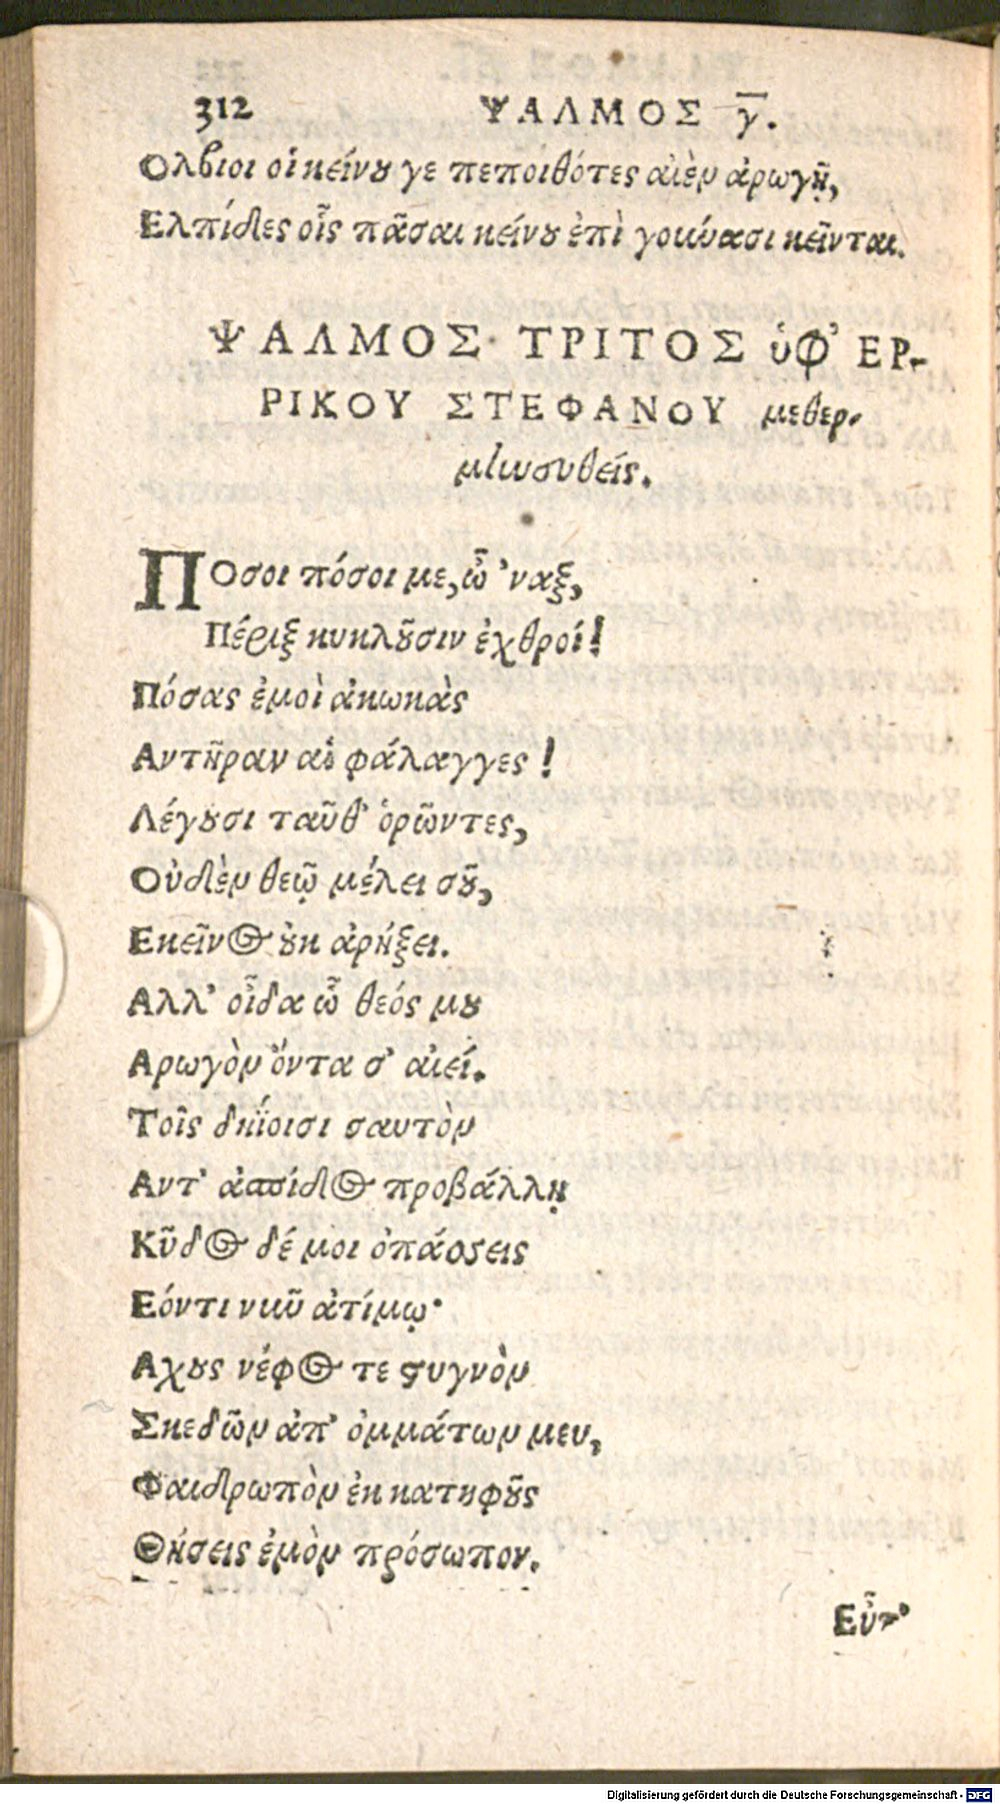 312 ΨΑΛΜΟΣ γ̅.
Ολβιοι οἱ κείνου γε πεποιθότες αἰὲν ἀρωγῇ,
Ελπίδες οἷς πᾶσαι κείνου ἐπὶ γούνασι κεῖνται.
ΨΑΛΜΟΣ ΤΡΙΤΟΣ ὑφ' ΕΡ-
ΡΙΚΟΥ ΣΤΕΦΑΝΟΥ μεθερ-
μηνευθείς.
ΠΟσοι πόσοι με, ὦ 'ναξ,
Πέριξ κυκλοῦσιν ἐχθροί!
Πόσας ἐμοὶ ἀκωκὰς
Αντῆραν αἱ φάλαγγες!
Λέγουσι ταῦθ' ὁρῶντες,
Οὐδὲν θεῷ μέλει σοῦ,
Εκεῖνος οὐκ ἀρήξει.
Αλλ' οἶδα ὦ θεός μου
Αρωγὸν ὄντα σ' αἰεί.
Τοῖς δηΐοισι σαυτὸν
Αντ' ἀσπίδος προβάλλῃ
Κῦδος δέ μοι ὀπάσσεις
Εόντι νῦν ἀτίμῳ·
Αχους νέφος τε στυγνὸν
Σκεδῶν ἀπ' ὀμμάτων μευ,
Φαιδρωπὸν ἐκ κατηφοῦς
Θήσεις ἐμὸν πρόσωπον.
Digitalisierung gefördert durch die Deutsche Forschungsgemeinschaft - DFG